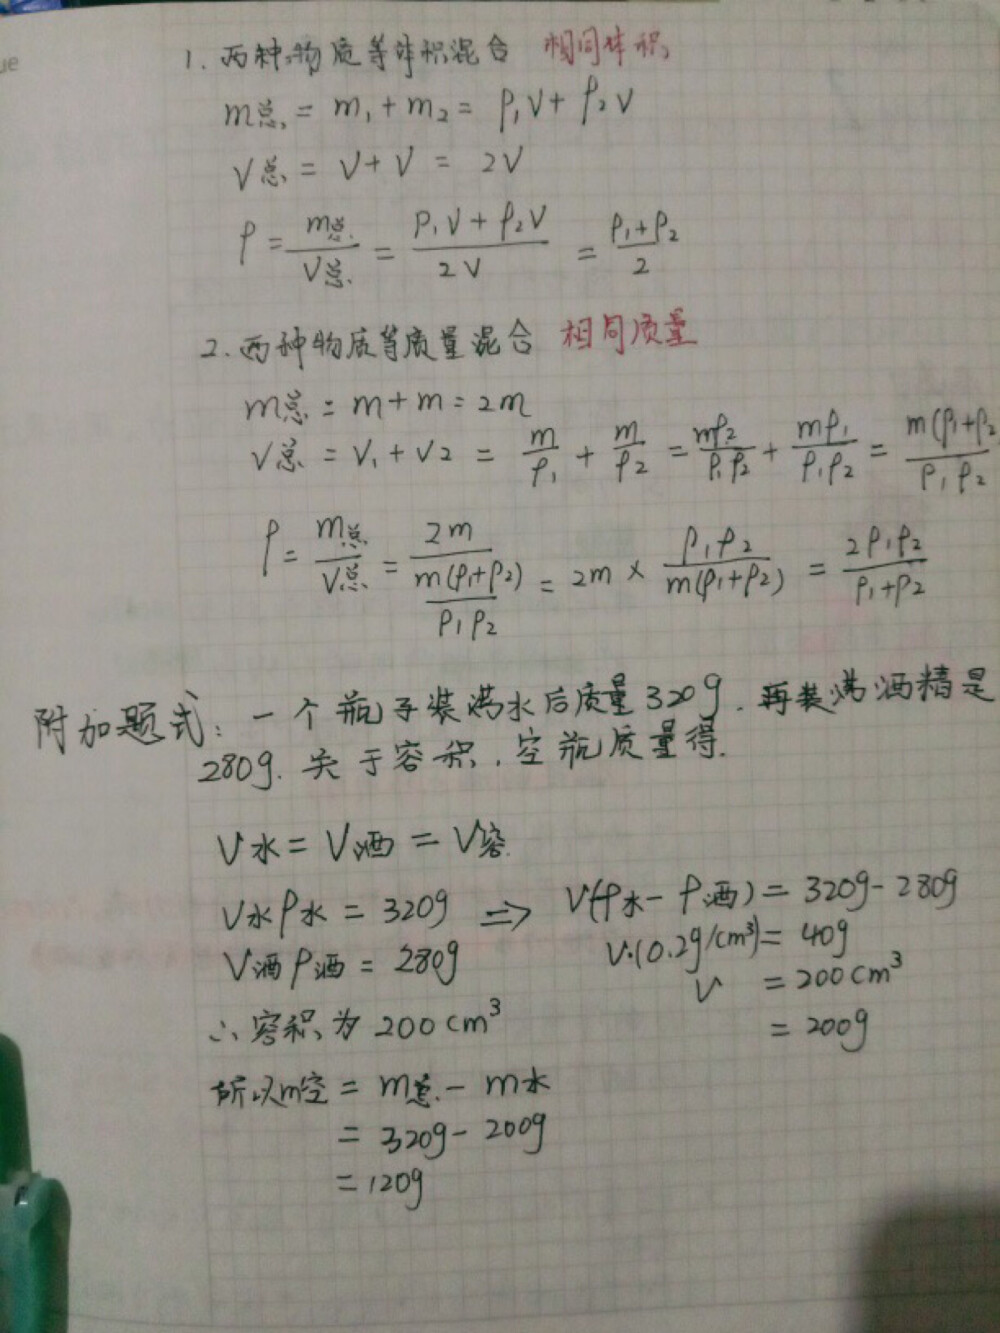 ue
1. 两种物质等体积混合 相同体积
m总 = m₁ + m₂ = ρ₁V + ρ₂V
V总 = V + V = 2V
ρ = m总/V总 = (ρ₁V + ρ₂V)/2V = (ρ₁+ρ₂)/2
2. 两种物质等质量混合 相同质量
m总 = m + m = 2m
V总 = V₁ + V₂ = m/ρ₁ + m/ρ₂ = mρ₂/ρ₁ρ₂ + mρ₁/ρ₁ρ₂ = m(ρ₁+ρ₂/ρ₁ρ₂
ρ = m总/V总 = 2m/(m(ρ₁+ρ₂)/ρ₁ρ₂) = 2m × ρ₁ρ₂/m(ρ₁+ρ₂) = 2ρ₁ρ₂/ρ₁+ρ₂
附加题式: 一个瓶子装满水后质量320g. 再装满酒精是
280g. 关于容积, 空瓶质量得.
V水 = V酒 = V容
V水ρ水 = 320g ⇒ V(ρ水 - ρ酒) = 320g - 280g
V酒ρ酒 = 280g V·(0.2g/cm³) = 40g
V = 200cm³
∴ 容积为 200cm³ = 200g
所以m空 = m总 - m水
= 320g - 200g
= 120g